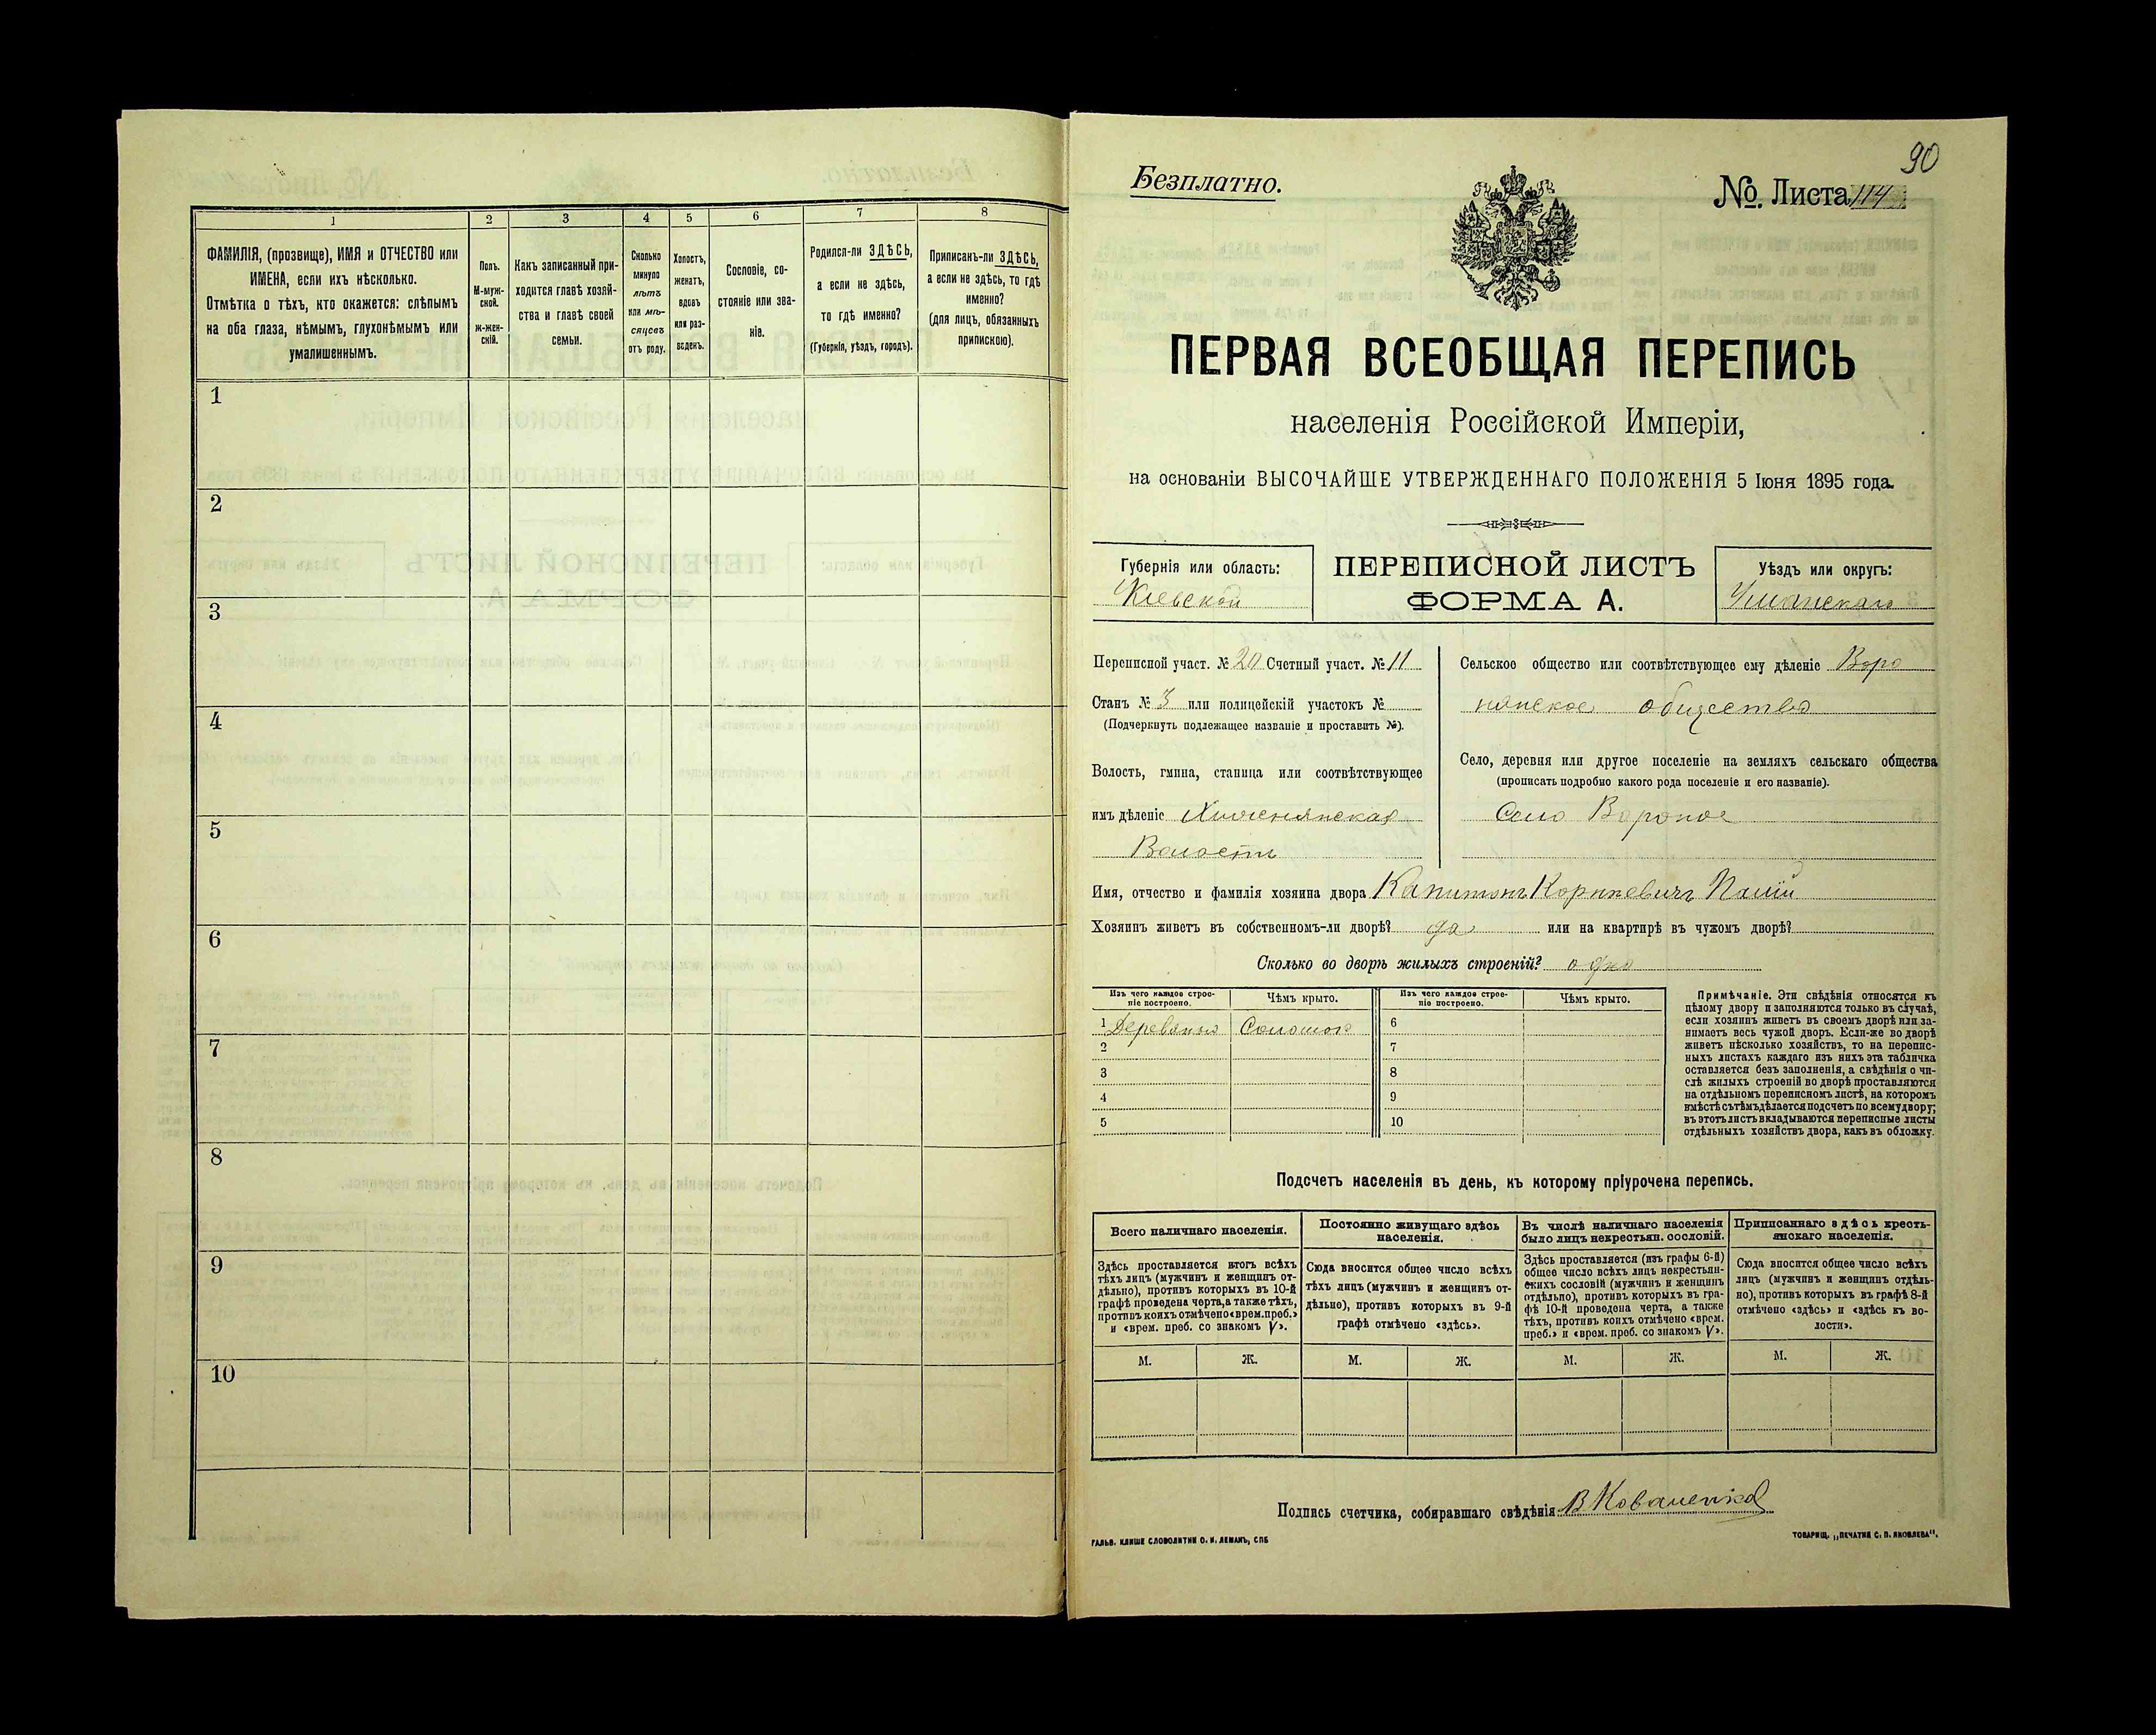 1
2
3
4
5
6
7
8
ФАМИЛІЯ, (прозвище), ИМЯ и ОТЧЕСТВО или
ИМЕНА, если ихъ нѣсколько.
Отмѣтка о тѣхъ, кто окажется: слѣпымъ
на оба глаза, нѣмымъ, глухонѣмымъ или
умалишеннымъ.
Полъ.
М-муж-
ской.
ж-жен-
скій.
Какъ записанный при-
ходится главѣ хозяй-
ства и главѣ своей
семьи.
Сколько
минуло
лѣтъ
или мѣ-
сяцевъ
отъ роду.
Холостъ,
женатъ,
вдовъ
или раз-
веденъ.
Сословіе, со-
стояніе или зва-
ніе.
Родился-ли ЗДѢСЬ,
а если не здѣсь,
то гдѣ именно?
(Губернія, уѣздъ, городъ).
Приписанъ-ли ЗДѢСЬ,
а если не здѣсь, то гдѣ
именно?
(для лицъ, обязанныхъ
припискою).
1
2
3
4
5
6
7
8
9
10
90
Безплатно.
№. Листа 114
ПЕРВАЯ ВСЕОБЩАЯ ПЕРЕПИСЬ
населенія Россійской Имперіи,
на основаніи ВЫСОЧАЙШЕ УТВЕРЖДЕННАГО ПОЛОЖЕНІЯ 5 Іюня 1895 года.
Губернія или область:
Кіевской
ПЕРЕПИСНОЙ ЛИСТЪ
ФОРМА А.
Уѣздъ или округъ:
Уманскаго
Переписной участ. № 20 Счетный участ. № 11
Станъ № 3 или полицейскій участокъ №
(Подчеркнуть подлежащее названіе и проставить №).
Волость, гмина, станица или соотвѣтствующее
имъ дѣленіе
Волость
Сельское общество или соотвѣтствующее ему дѣленіе Воро
нянское общество
Село, деревня или другое поселеніе на земляхъ сельскаго общества
(прописать подробно какого рода поселеніе и его названіе).
Село Вороное
Имя, отчество и фамилія хозяина двора Капитонъ Корніевичъ Палій
Хозяинъ живетъ въ собственномъ-ли дворѣ? да или на квартирѣ въ чужомъ дворѣ?
Сколько во дворѣ жилыхъ строеній? одно
Изъ чего каждое строе-
ніе построено.
Чѣмъ крыто.
Изъ чего каждое строе-
ніе построено.
Чѣмъ крыто.
1 Деревянно Соломою
2
3
4
5
6
7
8
9
10
Примѣчаніе. Эти свѣдѣнія относятся къ
цѣлому двору и заполняются только въ случаѣ,
если хозяинъ живетъ въ своемъ дворѣ или за-
нимаетъ весь чужой дворъ. Если-же во дворѣ
живетъ нѣсколько хозяйствъ, то на перепис-
ныхъ листахъ каждаго изъ нихъ эта табличка
оставляется безъ заполненія, а свѣдѣнія о чи-
слѣ жилыхъ строеній во дворѣ проставляются
на отдѣльномъ переписномъ листѣ, на которомъ
вмѣстѣ съ тѣмъ дѣлается подсчетъ по всему двору;
въ этотъ листъ вкладываются переписные листы
отдѣльныхъ хозяйствъ двора, какъ въ обложку.
Подсчетъ населенія въ день, къ которому пріурочена перепись.
Всего наличнаго населенія.
Здѣсь проставляется итогъ всѣхъ
тѣхъ лицъ (мужчинъ и женщинъ от-
дѣльно), противъ которыхъ въ 10-й
графѣ проведена черта, а также тѣхъ,
противъ коихъ отмѣчено «врем. преб.»
и «врем. преб. со знакомъ V».
Постоянно живущаго здѣсь
населенія.
Сюда вносится общее число всѣхъ
тѣхъ лицъ (мужчинъ и женщинъ от-
дѣльно), противъ которыхъ въ 9-й
графѣ отмѣчено «здѣсь».
Въ числѣ наличнаго населенія
было лицъ некрестьян. сословій.
Здѣсь проставляется (изъ графы 6-й)
общее число всѣхъ лицъ некрестьян-
скихъ сословій (мужчинъ и женщинъ
отдѣльно), противъ которыхъ въ гра-
фѣ 10-й проведена черта, а также
тѣхъ, противъ коихъ отмѣчено «врем.
преб.» и «врем. преб. со знакомъ V».
Приписаннаго здѣсь кресть-
янскаго населенія.
Сюда вносится общее число всѣхъ
лицъ (мужчинъ и женщинъ отдѣль-
но), противъ которыхъ въ графѣ 8-й
отмѣчено «здѣсь» и «здѣсь къ во-
лости».
М. Ж. М. Ж. М. Ж. М. Ж.
Подпись счетчика, собиравшаго свѣдѣнія: В Коваленко
ГАЛЬВ. КЛИШЕ СЛОВОЛИТНИ О. И. ЛЕМАНЪ, СПБ
ТОВАРИЩ. „ПЕЧАТНЯ С. П. ЯКОВЛЕВА".